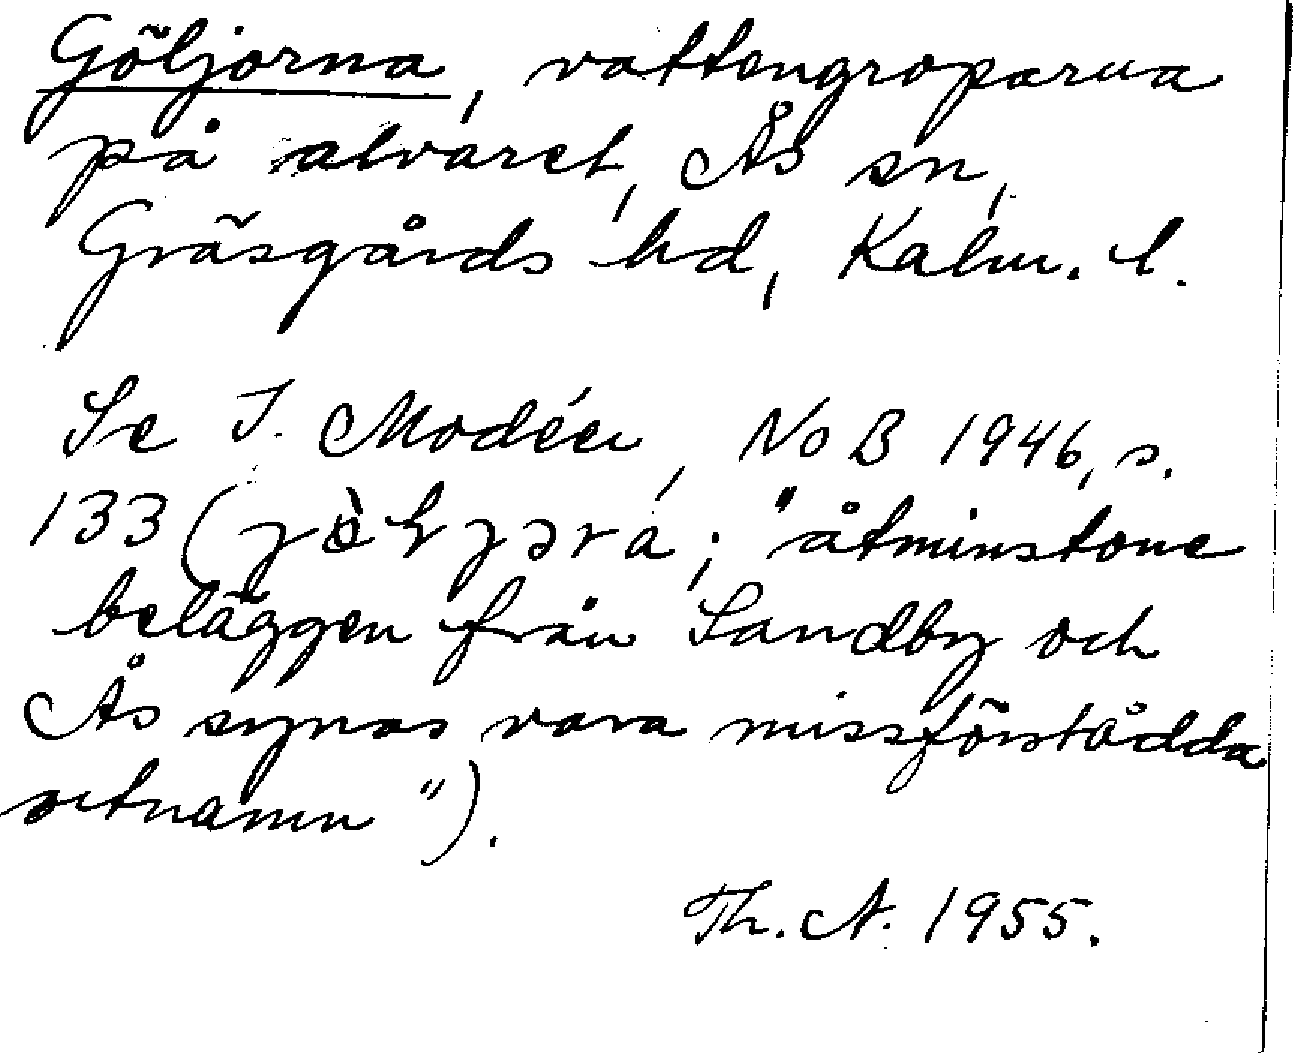 Göljorna, vattengroparna
på alvaret, Ås sn,
Gräsgårds hd, Kalm. l.
Se I. Modéer, NoB 1946, s.
133 (; "åtminstone
beläggen från Sandby och
Ås synas vara missförstådda
ortnamn").
Th. A. 1955.